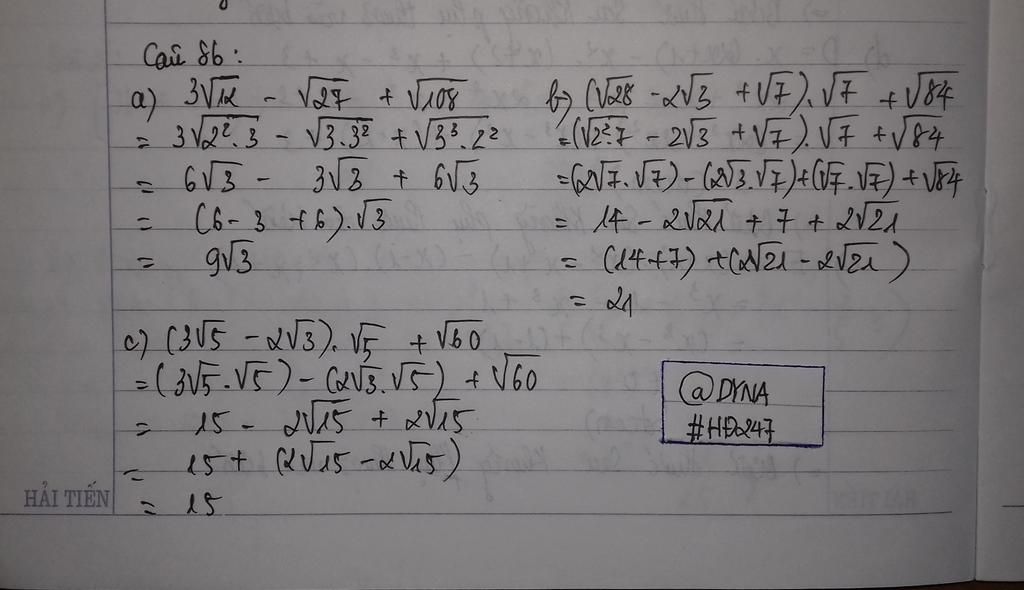 Câu 86:
a) 3√12 - √27 + √108
= 3√2².3 - √3.3² + √3³.2²
= 6√3 - 3√3 + 6√3
= (6-3+6).√3
= 9√3
b) (√28 - 2√3 + √7).√7 + √84
=(√2².7 - 2√3 + √7).√7 + √84
=(2√7.√7) - (2√3.√7)+(√7.√7) + √84
= 14 - 2√21 + 7 + 2√21
= (14+7) + (2√21 - 2√21)
= 21
c) (3√5 - 2√3).√5 + √60
=(3√5.√5) - (2√3.√5) + √60
= 15 - 2√15 + 2√15
= 15 + (2√15 - 2√15)
= 15
@DYNA
#HĐ247
HẢI TIẾN